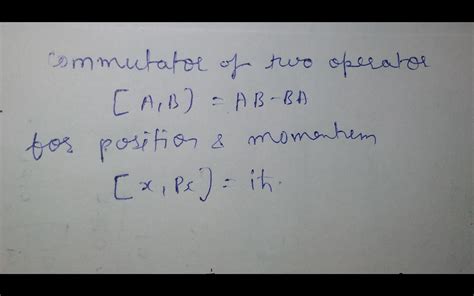 commutator of two operator
[A,B) = AB-BA
for position & momentum
[x, Px) = iħ.